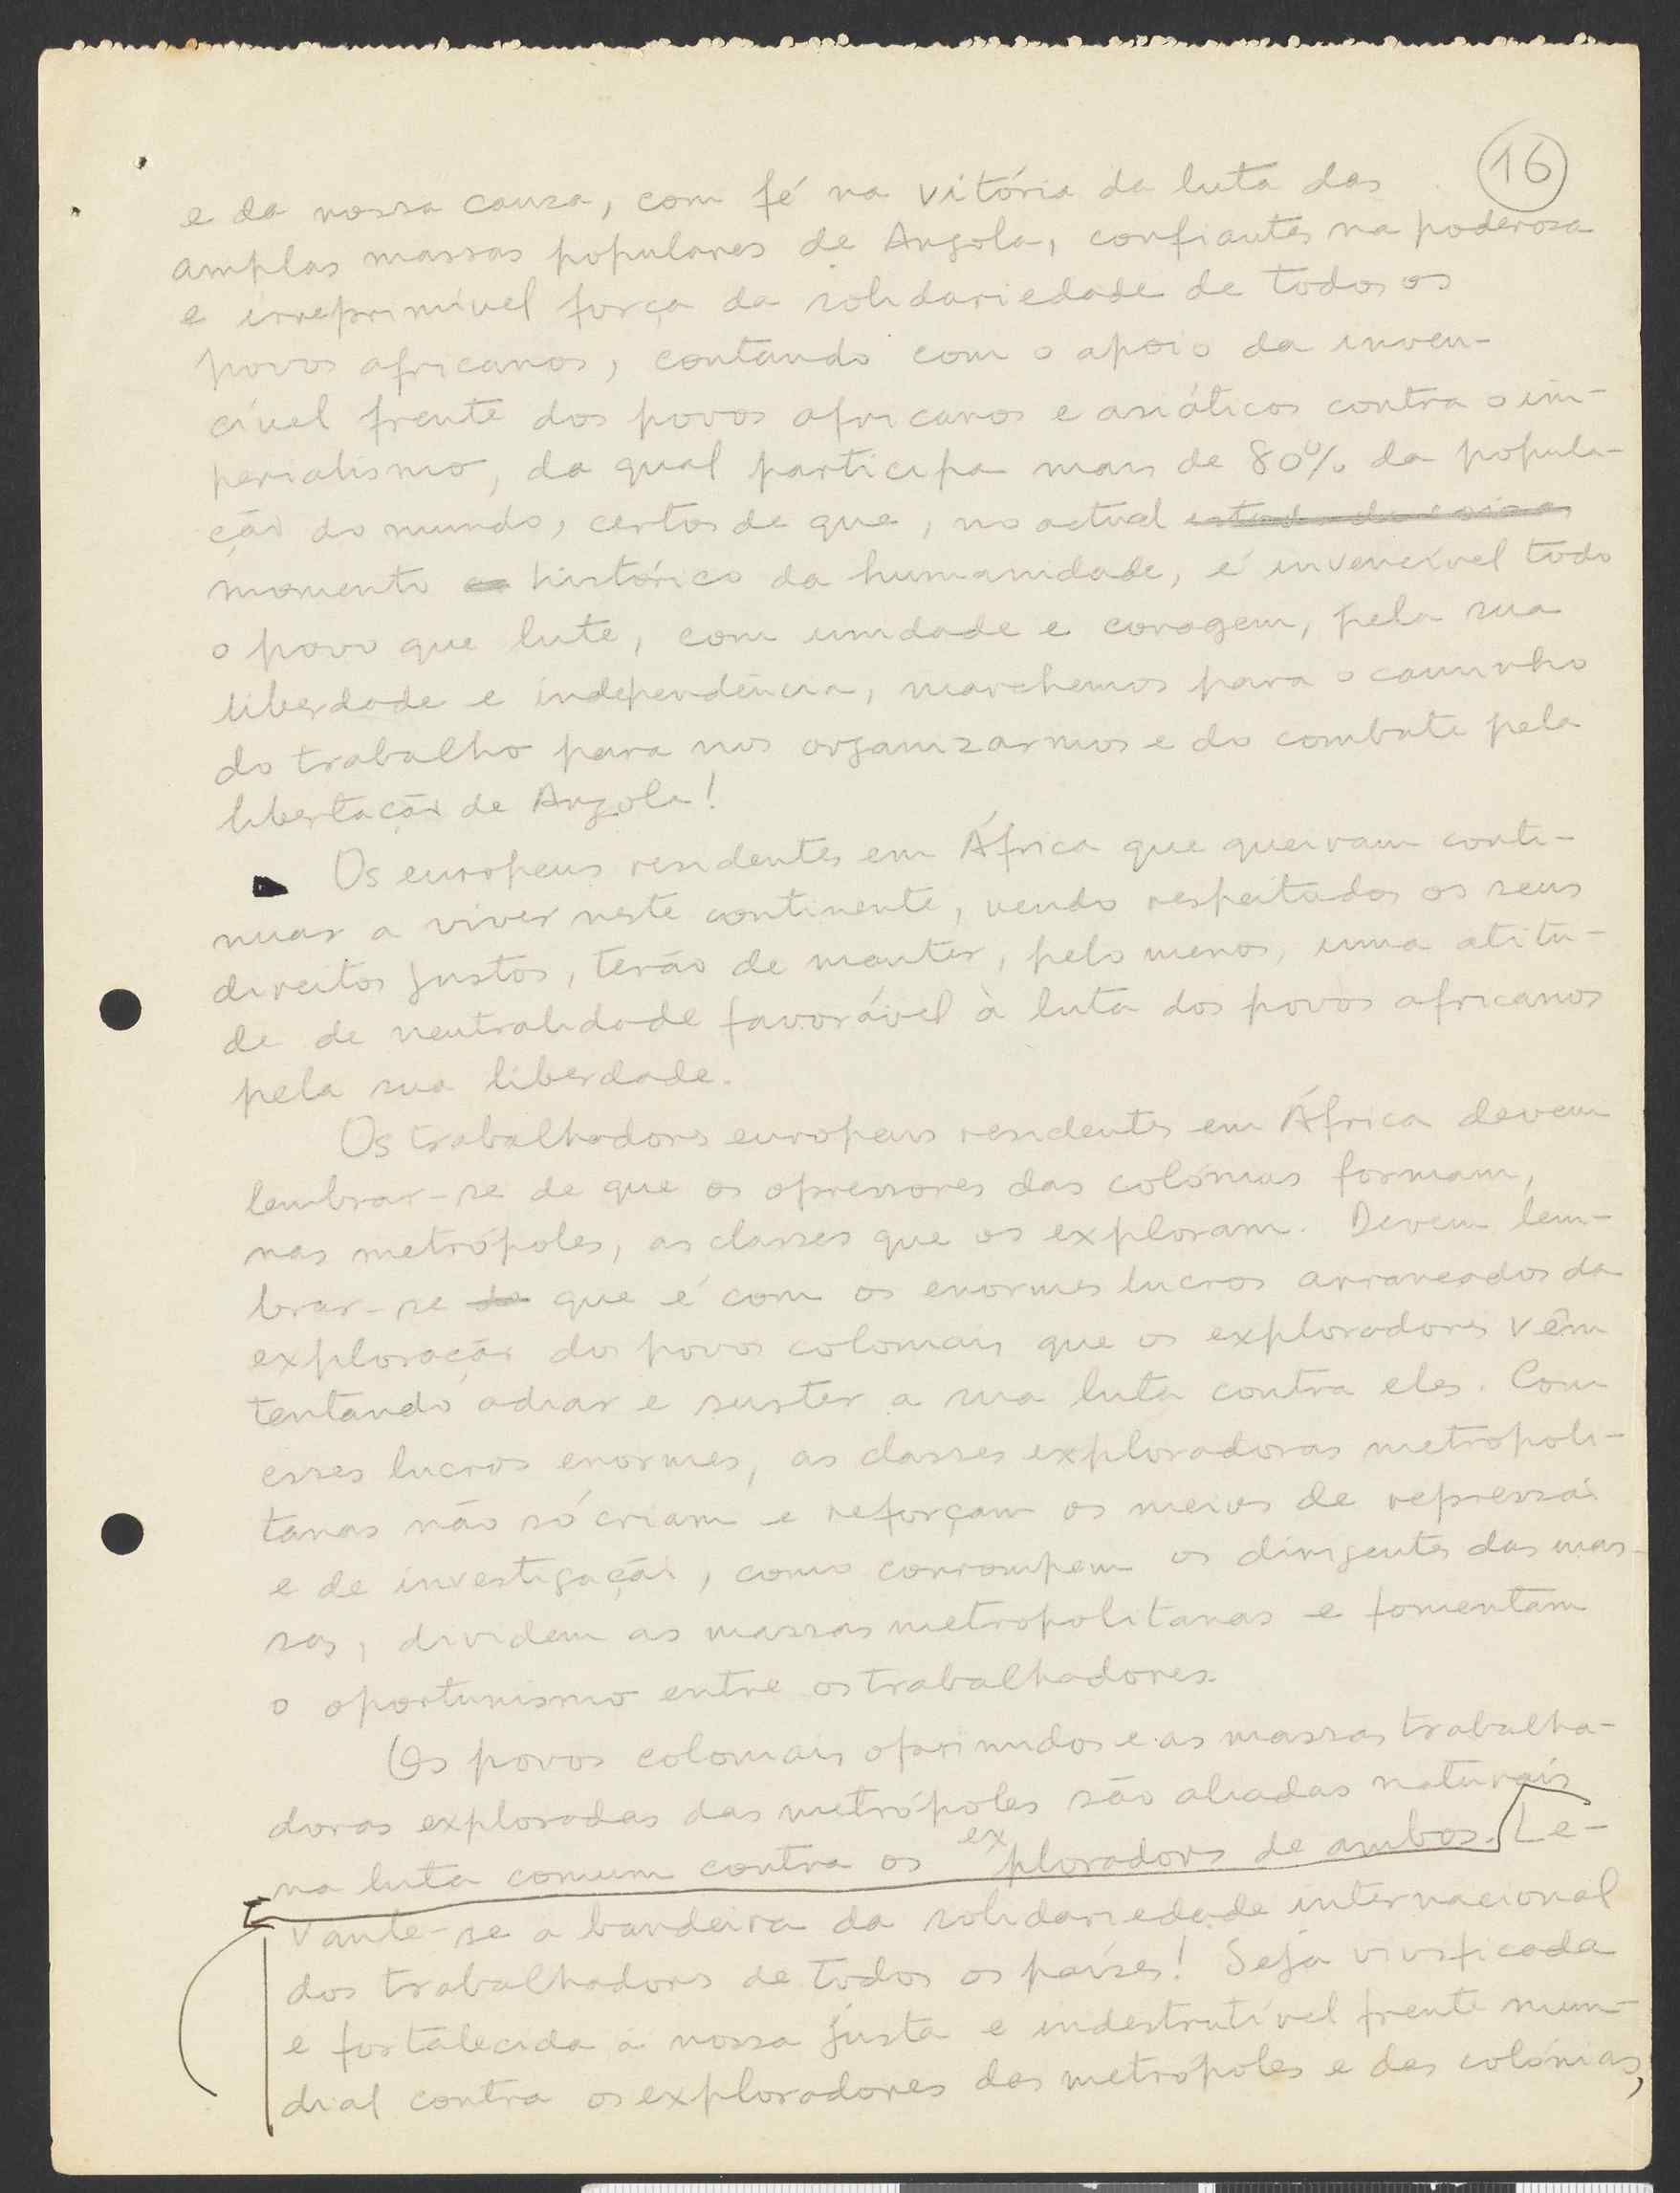 16
e da nossa causa, com fé na vitória da luta das
amplas massas populares de Angola, confiantes na poderosa
e irreprimível força da solidariedade de todos os
povos africanos, contando com o apoio da inven-
cível frente dos povos africanos e asiáticos contra o im-
perialismo, da qual participa mais de 80% da popula-
ção do mundo, certos de que, no actual estado de coisas
momento histórico da humanidade, é invencível todo
o povo que lute, com unidade e coragem, pela sua
liberdade e independência, marchemos para o caminho
do trabalho para nos organizarmos e do combate pela
libertação de Angola!
Os europeus residentes em África que queiram conti-
nuar a viver neste continente, vendo respeitados os seus
direitos justos, terão de manter, pelo menos, uma atitu-
de de neutralidade favorável à luta dos povos africanos
pela sua liberdade.
Os trabalhadores europeus residentes em África devem
lembrar-se de que os opressores das colónias formam,
nas metrópoles, as classes que os exploram. Devem lem-
brar-se de que é com os enormes lucros arrancados da
exploração dos povos coloniais que os exploradores vêm
tentando adiar e suster a sua luta contra eles. Com
esses lucros enormes, as classes exploradoras metropoli-
tanas não só criam e reforçam os meios de repressão
e de investigação, como corrompem os dirigentes das mas-
sas, dividem as massas metropolitanas e fomentam
o oportunismo entre os trabalhadores.
Os povos coloniais oprimidos e as massas trabalha-
doras exploradas das metrópoles são aliadas naturais
na luta comum contra os exploradores de ambos. Le-
vante-se a bandeira da solidariedade internacional
dos trabalhadores de todos os países! Seja vivificada
e fortalecida a nossa justa e indestrutível frente mun-
dial contra os exploradores das metrópoles e das colónias,